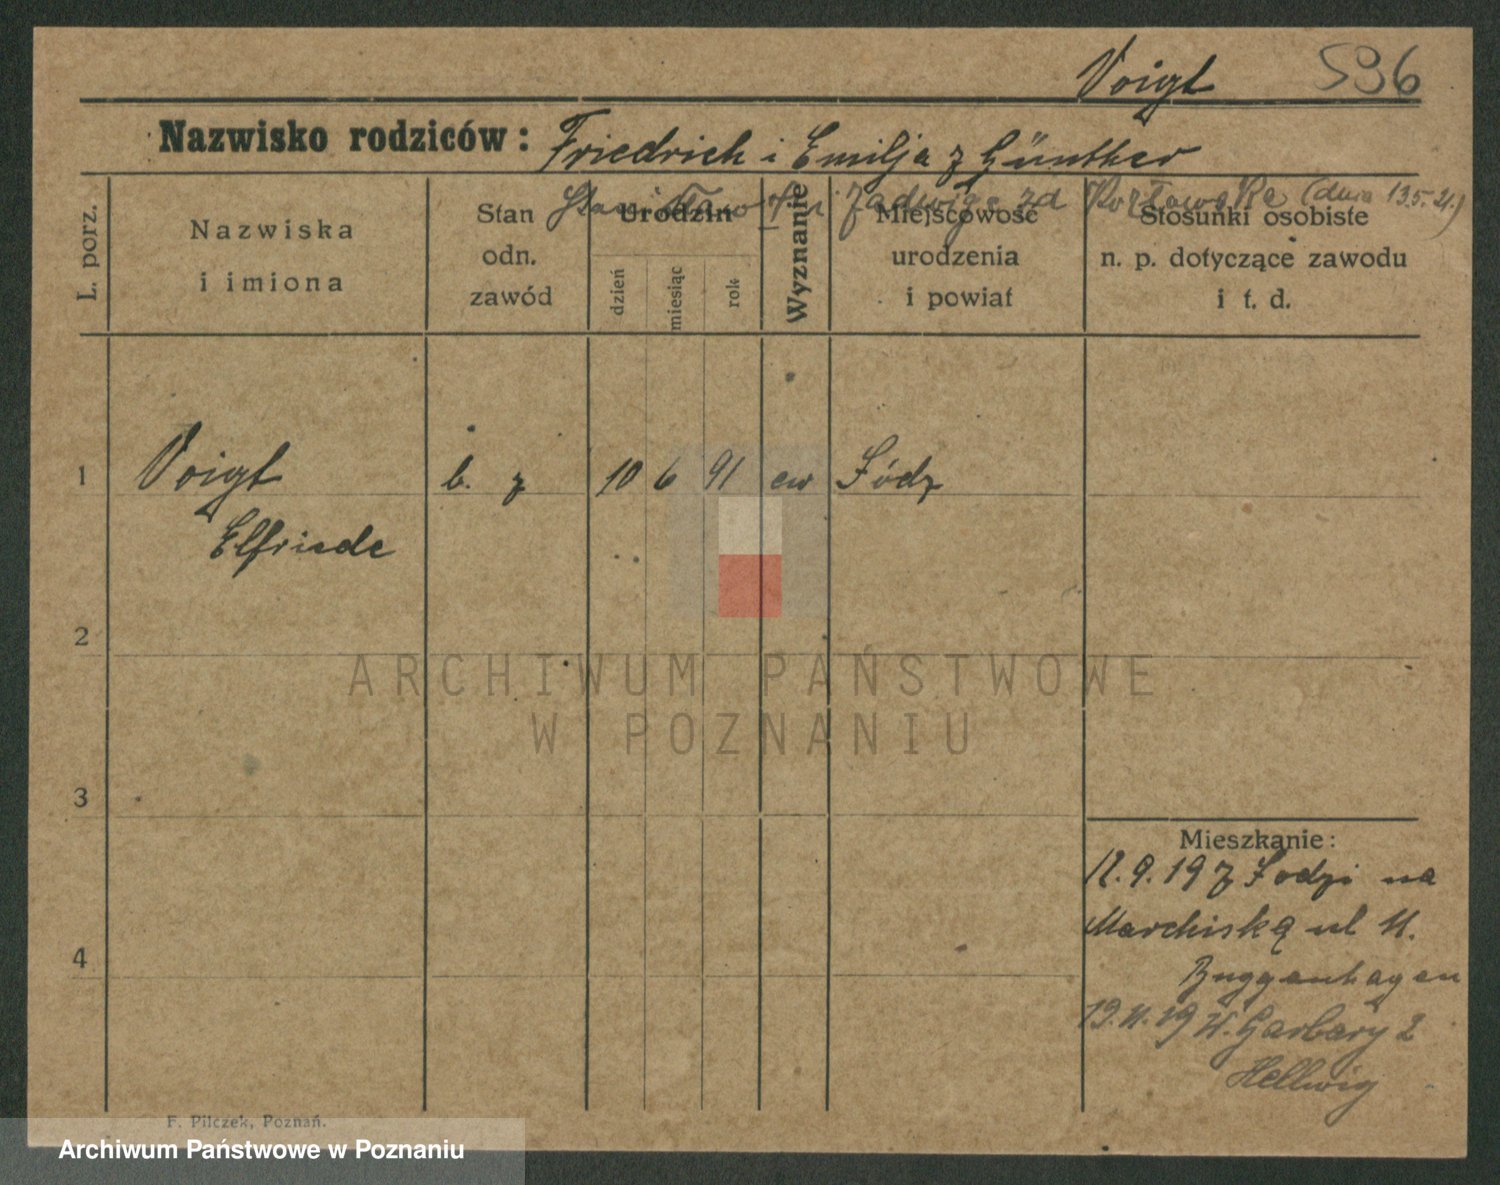 Voigt 596
Nazwisko rodziców: Friedrich i Emilja z Günther
Stanisław i Jadwiga zd Kozłowska (dnia 13.5.21.)
L. porz.
Nazwiska
i imiona
Stan
odn.
zawód
Urodzin
dzień
miesiąc
rok
Wyznanie
Miejscowość
urodzenia
i powiat
Stosunki osobiste
n. p. dotyczące zawodu
i t. d.
1 Voigt b. z 10 6 91 ew Łódz
Elfriede
2
ARCHIWUM PAŃSTWOWE
W POZNANIU
3
Mieszkanie:
12.9.19 z Łodzi na
ul 11.
4
Buggenhagen
19.11.19 W. Garbary 2
Hellwig
F. Pilczek, Poznań.
Archiwum Państwowe w Poznaniu